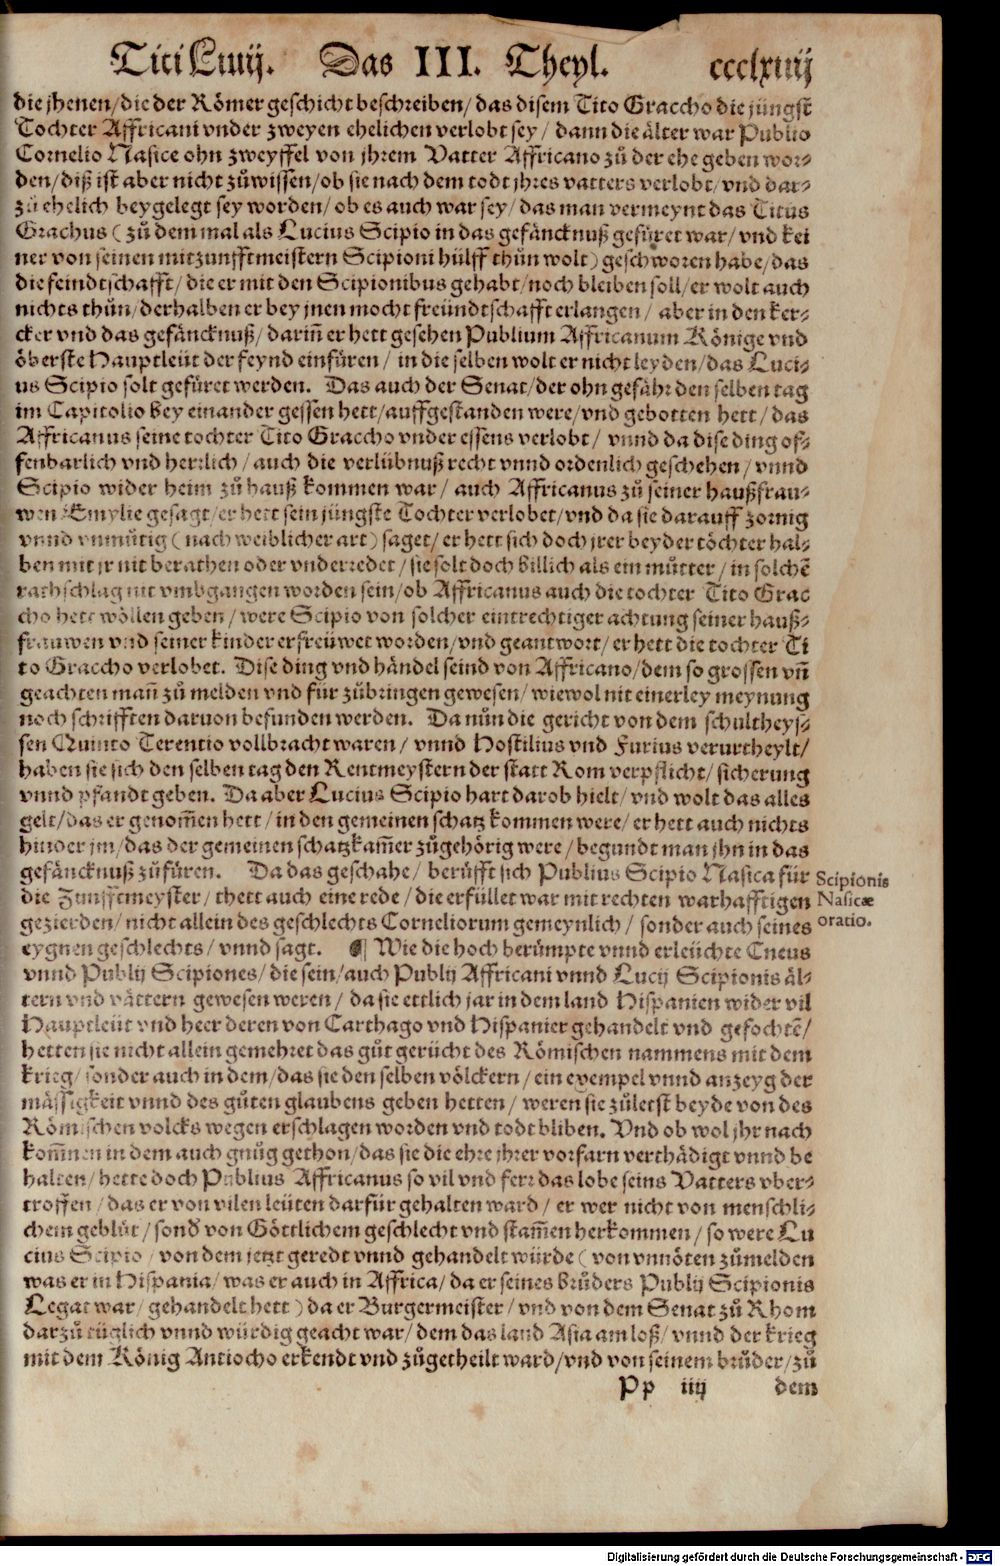 Titi Liuij. Das III. Theyl. ccclxiiij
die jhenen/die der Römer geschicht beschreiben/das disem Tito Graccho die jüngst
Tochter Affricani vnder zweyen ehelichen verlobt sey/ dann die älter war Publio
Cornelio Nasice ohn zweyffel von jhrem Vatter Affricano zů der ehe geben wor⸗
den/diß ist aber nicht zůwissen/ob sie nach dem todt jhres vatters verlobt/vnd dar⸗
zů ehelich beygelegt sey worden/ob es auch war sey/das man vermeynt das Titus
Grachus (zů dem mal als Lucius Scipio in das gefäncknuß gefüret war/vnd kei
ner von seinen mitzunfftmeistern Scipioni hülff thůn wolt) geschworen habe/das
die feindtschafft/die er mit den Scipionibus gehabt/noch bleiben soll/er wolt auch
nichts thůn/derhalben er bey jnen mocht freündtschafft erlangen/ aber in den ker⸗
cker vnd das gefäncknuß/dariñ er hett gesehen Publium Affricanum Könige vnd
öberste Hauptleüt der feynd einfüren/ in die selben wolt er nicht leyden/das Luci⸗
us Scipio solt gefüret werden. Das auch der Senat/der ohn gefähr den selben tag
im Capitolio bey einander gessen hett/auffgestanden were/vnd gebotten hett/das
Affricanus seine tochter Tito Graccho vnder essens verlobt/ vnnd da dise ding of⸗
fenbarlich vnd herrlich/auch die verlübnuß recht vnnd ordenlich geschehen/vnnd
Scipio wider heim zů hauß kommen war/ auch Affricanus zů seiner haußfrau⸗
wen Emylie gesagt/er hett sein jüngste Tochter verlobet/vnd da sie darauff zornig
vnnd vnmütig (nach weiblicher art) saget/er hett sich doch jrer beyder töchter hal⸗
ben mit jr nit berathen oder vnderredet/sie solt doch billich als ein můtter/in solchē
rathschlag nit vmbgangen worden sein/ob Affricanus auch die tochter Tito Grac
cho hett wöllen geben/were Scipio von solcher eintrechtiger achtung seiner hauß⸗
frauwen vnd seiner kinder erfreüwet worden/vnd geantwort/er hett die tochter Ti
to Graccho verlobet. Dise ding vnd händel seind von Affricano/dem so grossen vñ
geachten mañ zů melden vnd für zůbringen gewesen/wiewol nit einerley meynung
noch schrifften daruon befunden werden. Da nůn die gericht von dem schultheys⸗
sen Quinto Terentio vollbracht waren/ vnnd Hostilius vnd Furius verurtheylt/
haben sie sich den selben tag den Rentmeystern der statt Rom verpflicht/sicherung
vnnd pfandt geben. Da aber Lucius Scipio hart darob hielt/vnd wolt das alles
gelt/das er genom̃en hett/in den gemeinen schatz kommen were/er hett auch nichts
hinder jm/das der gemeinen schatzkam̃er zůgehörig were/begundt man jhn in das
gefäncknuß zůfüren. Da das geschahe/ berüfft sich Publius Scipio Nasica für
die Zunfftmeyster/thett auch eine rede/die erfüllet war mit rechten warhafftigen
gezierden/nicht allein des geschlechts Corneliorum gemeynlich/sonder auch seines
eygnen geschlechts/vnnd sagt. ¶ Wie die hoch berümpte vnnd erleüchte Cneus
vnnd Publij Scipiones/die sein/auch Publij Affricani vnnd Lucij Scipionis äl⸗
tern vnd vättern gewesen weren/da sie ettlich jar in dem land Hispanien wider vil
Hauptleüt vnd heer deren von Carthago vnd Hispanier gehandelt vnd gefochtē/
hetten sie nicht allein gemehret das gůt gerücht des Römischen nammens mit dem
krieg/sonder auch in dem/das sie den selben völckern/ein exempel vnnd anzeyg der
mässigkeit vnnd des gůten glaubens geben hetten/weren sie zůletst beyde von des
Römischen volcks wegen erschlagen worden vnd todt bliben. Vnd ob wol jhr nach
kom̃nen in dem auch gnůg gethon/das sie die ehre jhrer vorfarn verthädigt vnnd be
halten/hette doch Publius Affricanus so vil vnd ferr das lobe seins Vatters vber⸗
troffen/das er von vilen leüten darfür gehalten ward/er wer nicht von menschli⸗
chem geblüt/sond̕ von Göttlichem geschlecht vnd stam̃en herkommen/so were Lu
cius Scipio/von dem jetzt geredt vnnd gehandelt würde (von vnnöten zůmelden
was er in Hispania/was er auch in Affrica/da er seines brůders Publij Scipionis
Legat war/gehandelt hett) da er Burgermeister/vnd von dem Senat zů Rhom
darzů tüglich vnnd würdig geacht war/dem das land Asia am loß/vnnd der krieg
mit dem König Antiocho erkendt vnd zůgetheilt ward/vnd von seinem brůder/zů
Pp iiij dem
Scipionis
Nasicæ
oratio.
Digitalisierung gefördert durch die Deutsche Forschungsgemeinschaft - DFG